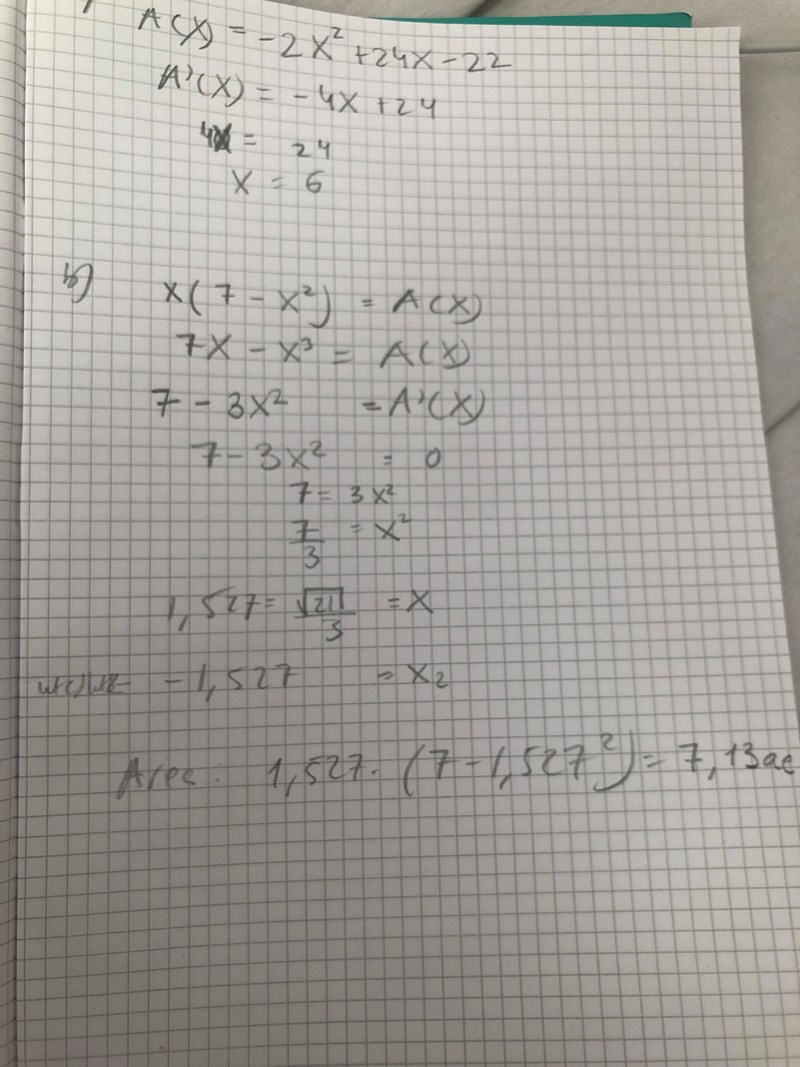 A(x) = -2x² + 24x - 22
A'(x) = -4x + 24
4x = 24
x = 6
b)
x(7 - x²) = A(x)
7x - x³ = A(x)
7 - 3x² = A'(x)
7 - 3x² = 0
7 = 3x²
7/3 = x²
1,527 = √21/3 = x
-1,527 = x₂
Area: 1,527 · (7 - 1,527²) = 7,13ae